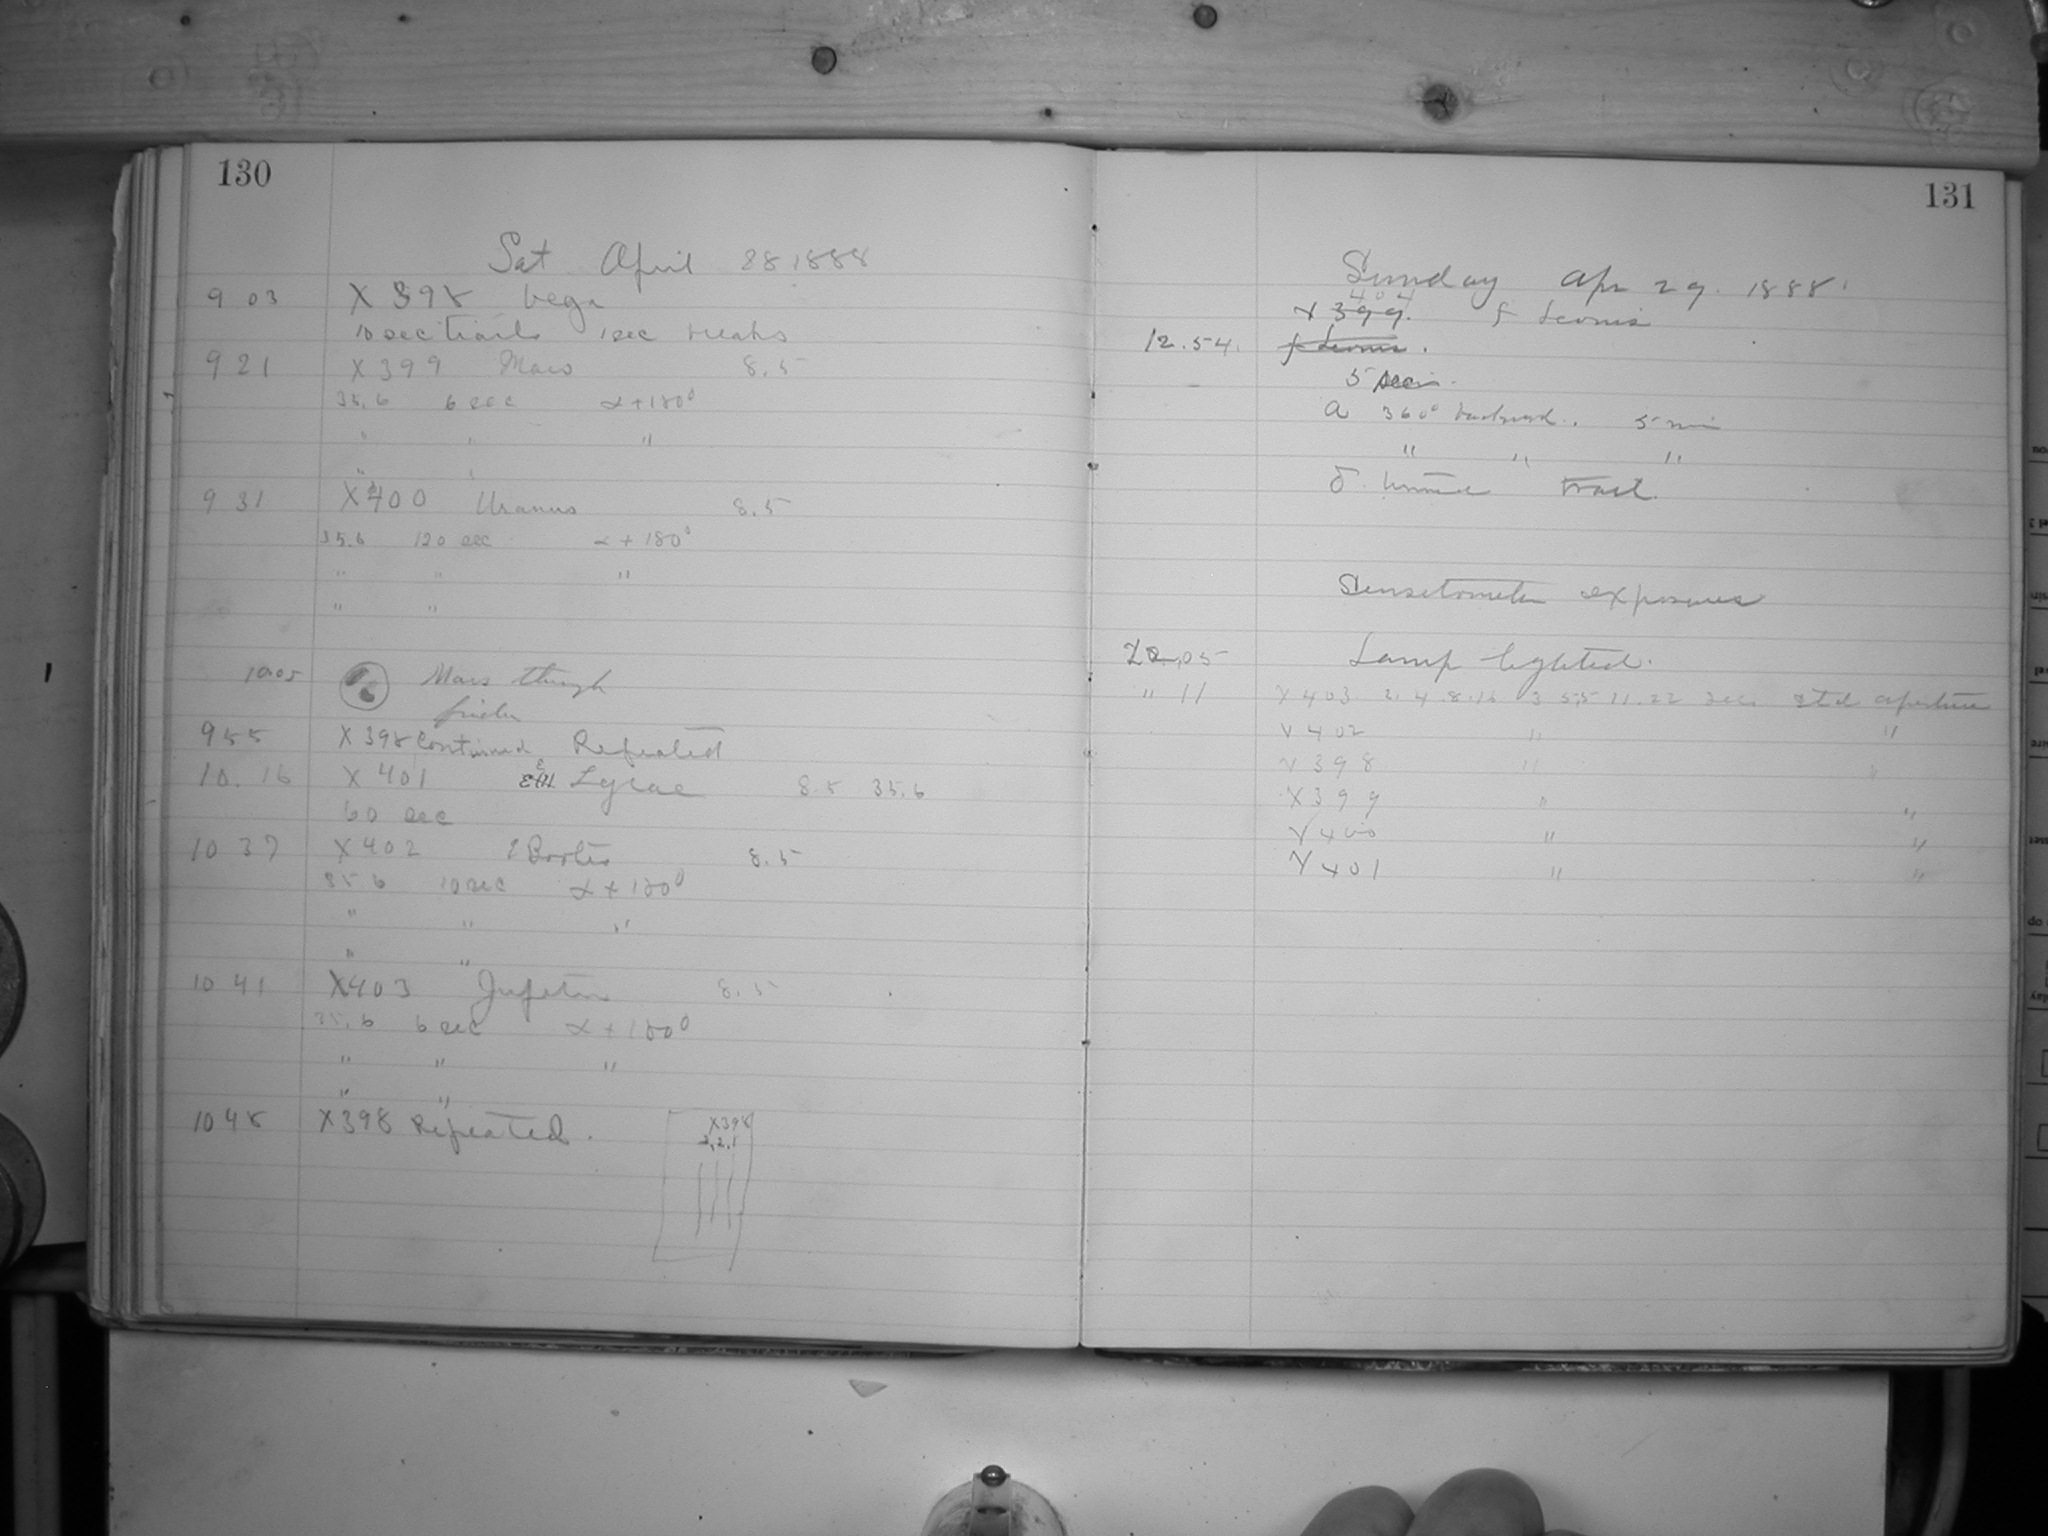 130
Sat April 28 1888
9 03 X 398 Vega
10 sec trails 1 sec breaks
9 21 X 399 Mars 8.5
35.6 6 sec α+180°
" " "
" "
9 31 X 400 Uranus 8.5
35.6 120 sec α+180°
" " "
" "
10.05 Mars through
finder
9 55 X 398 Continued Repeated
10.16 X 401 ε Lyrae 8.5 35.6
60 sec
10 37 X 402 Bootis 8.5
35 6 10 sec α+180°
" " "
" "
10 41 X403 Jupiter 8.5
35.6 6 sec α+180°
" " "
" "
10 48 X398 Repeated.
X398
3,2,1
131
Sunday Apr 29. 1888.
404
X 399. Leonis
12.54. Leonis.
5 secs.
a 360° backward. 5 min
" " "
δ
Sensetometer exposures
22.05 Lamp lighted.
" 11 X 403 2. 4. 8. 16. 3 5.5 11. 22 Sec. Std aperture
X 402 " "
X 398 " "
X 399 " "
X 400 " "
X 401 " "